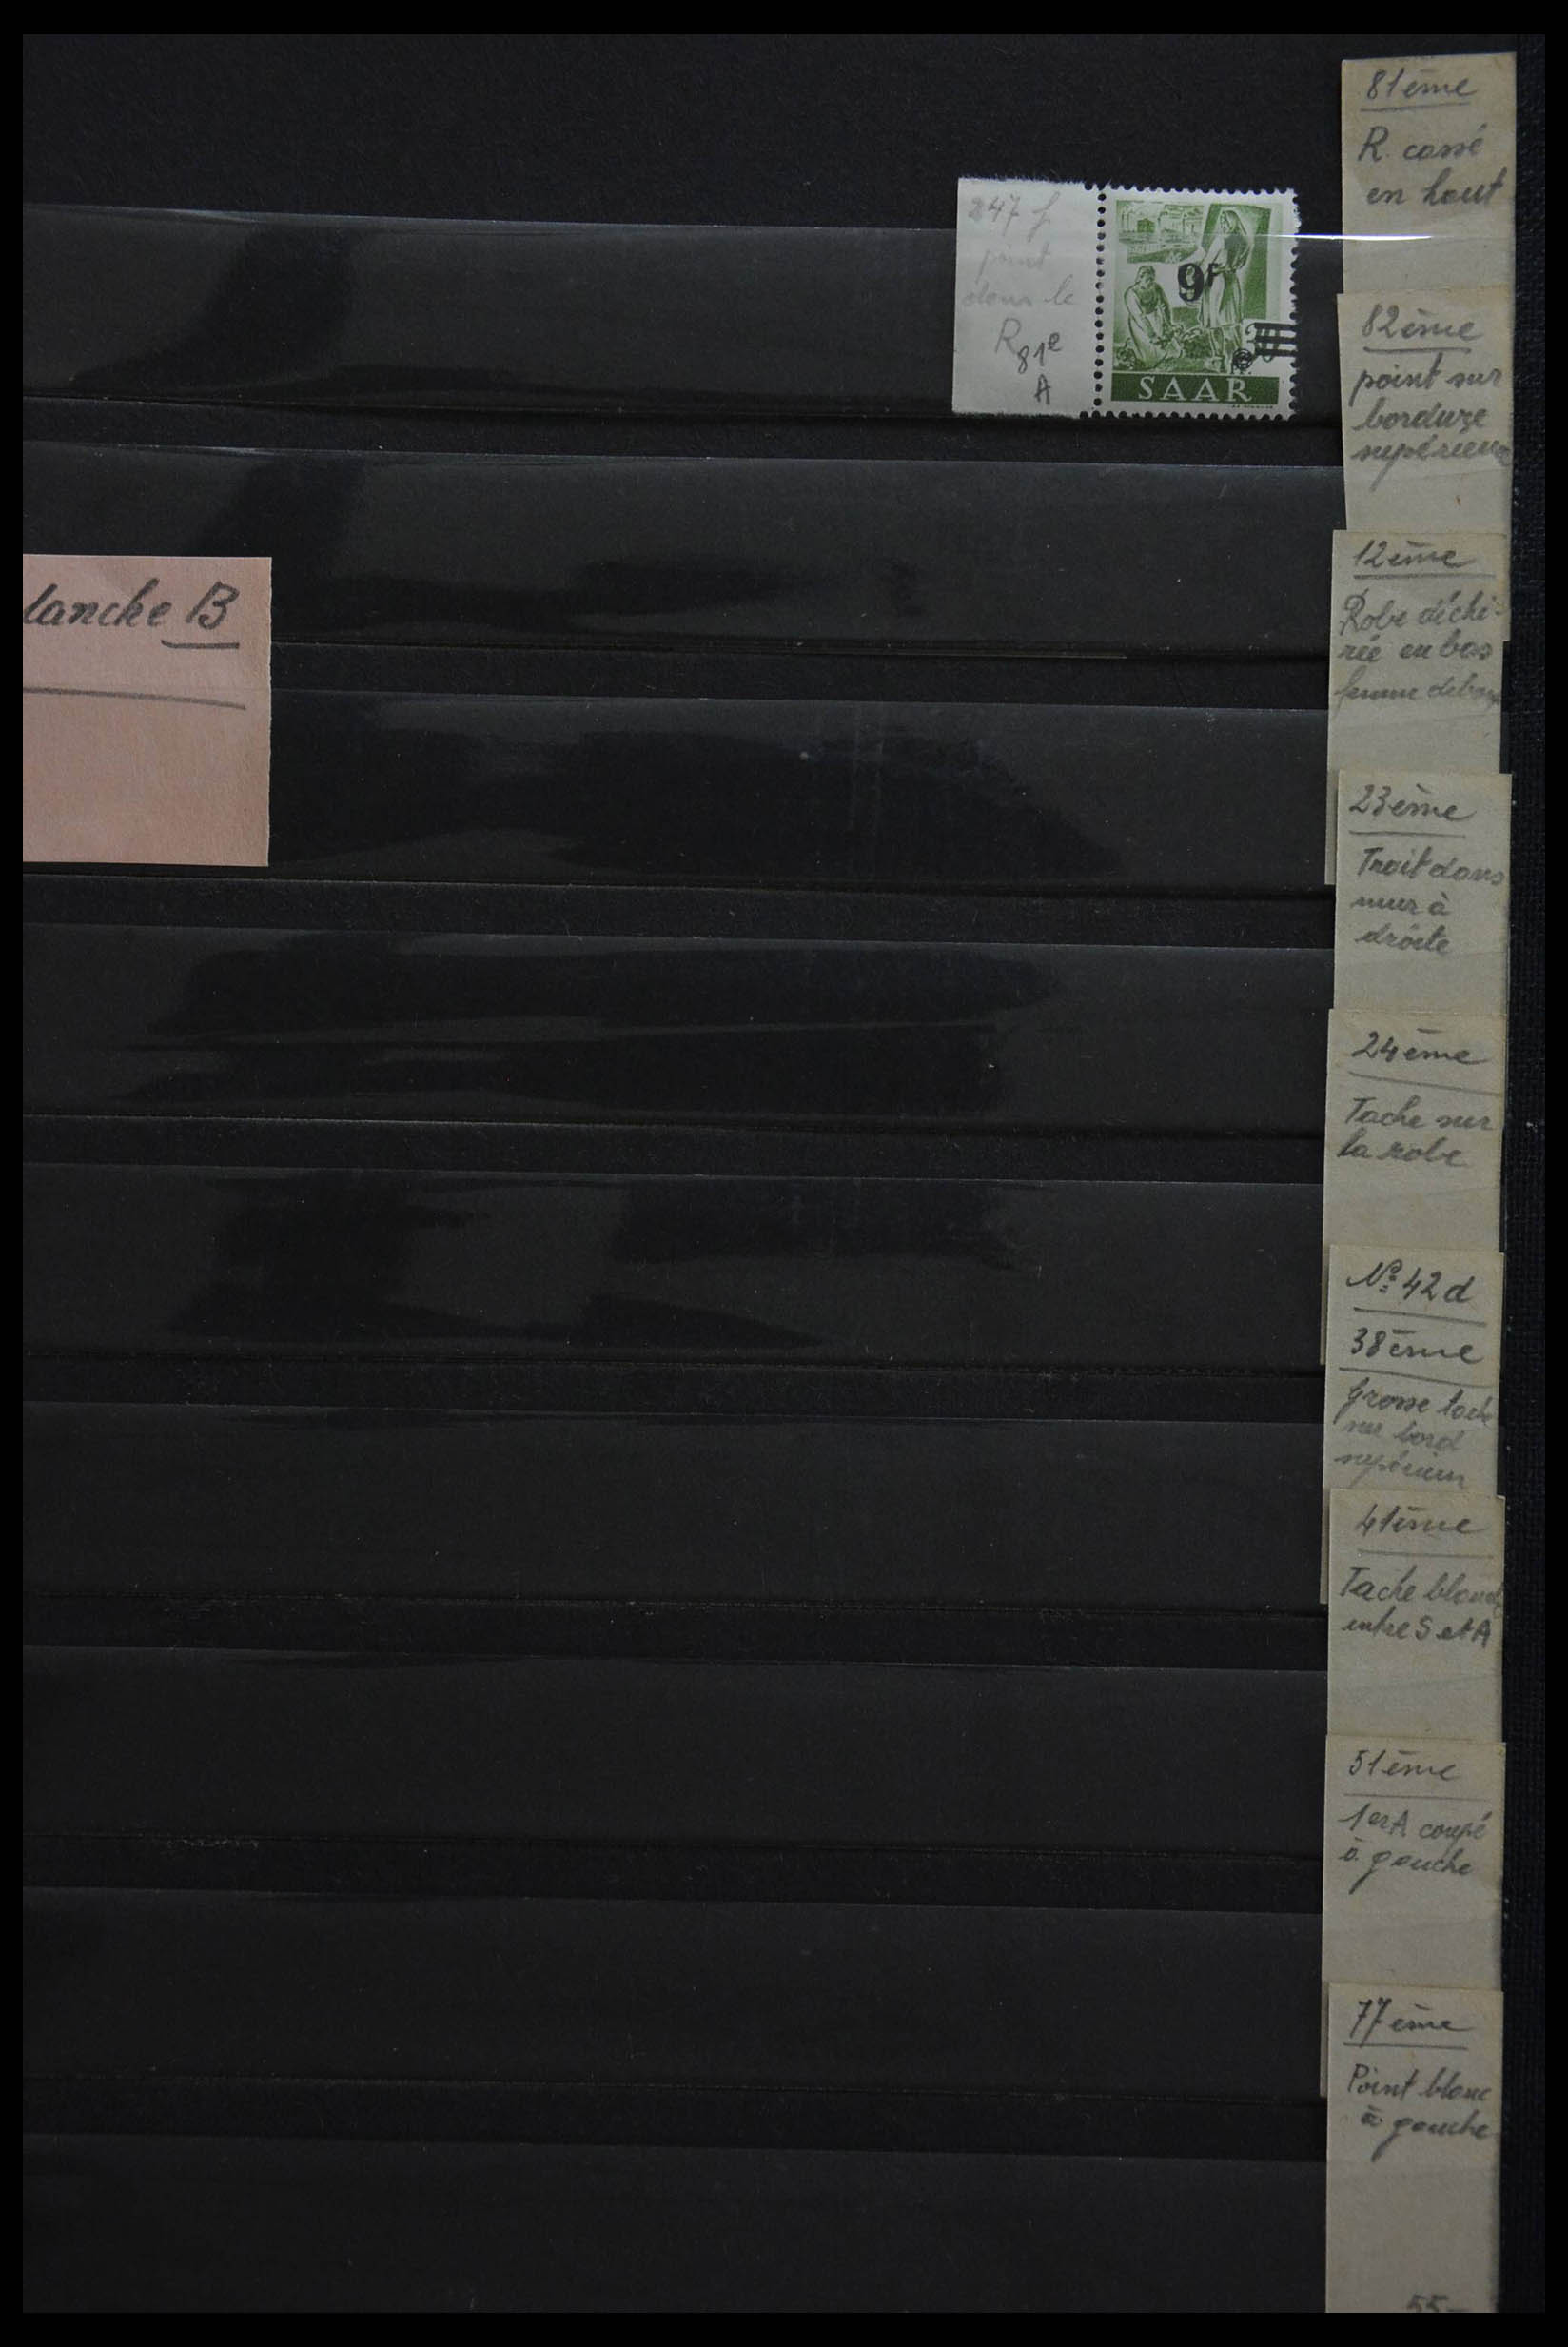 81ème
R. cassé
en haut
247 f
point
dans le
R 81e
A
9F
SAAR
82ème
point sur
bordure
supérieure
lanche B
12ème
Robe déchi-
rée en bas
femme debout
23ème
Trait dans
mur à
droite
24ème
Tache sur
la robe
Nº 42 d
38ème
Grosse tache
sur bord
supérieur
41ème
Tache blanche
entre S et A
51ème
1er A coupé
à gauche
77ème
Point blanc
à gauche
55-